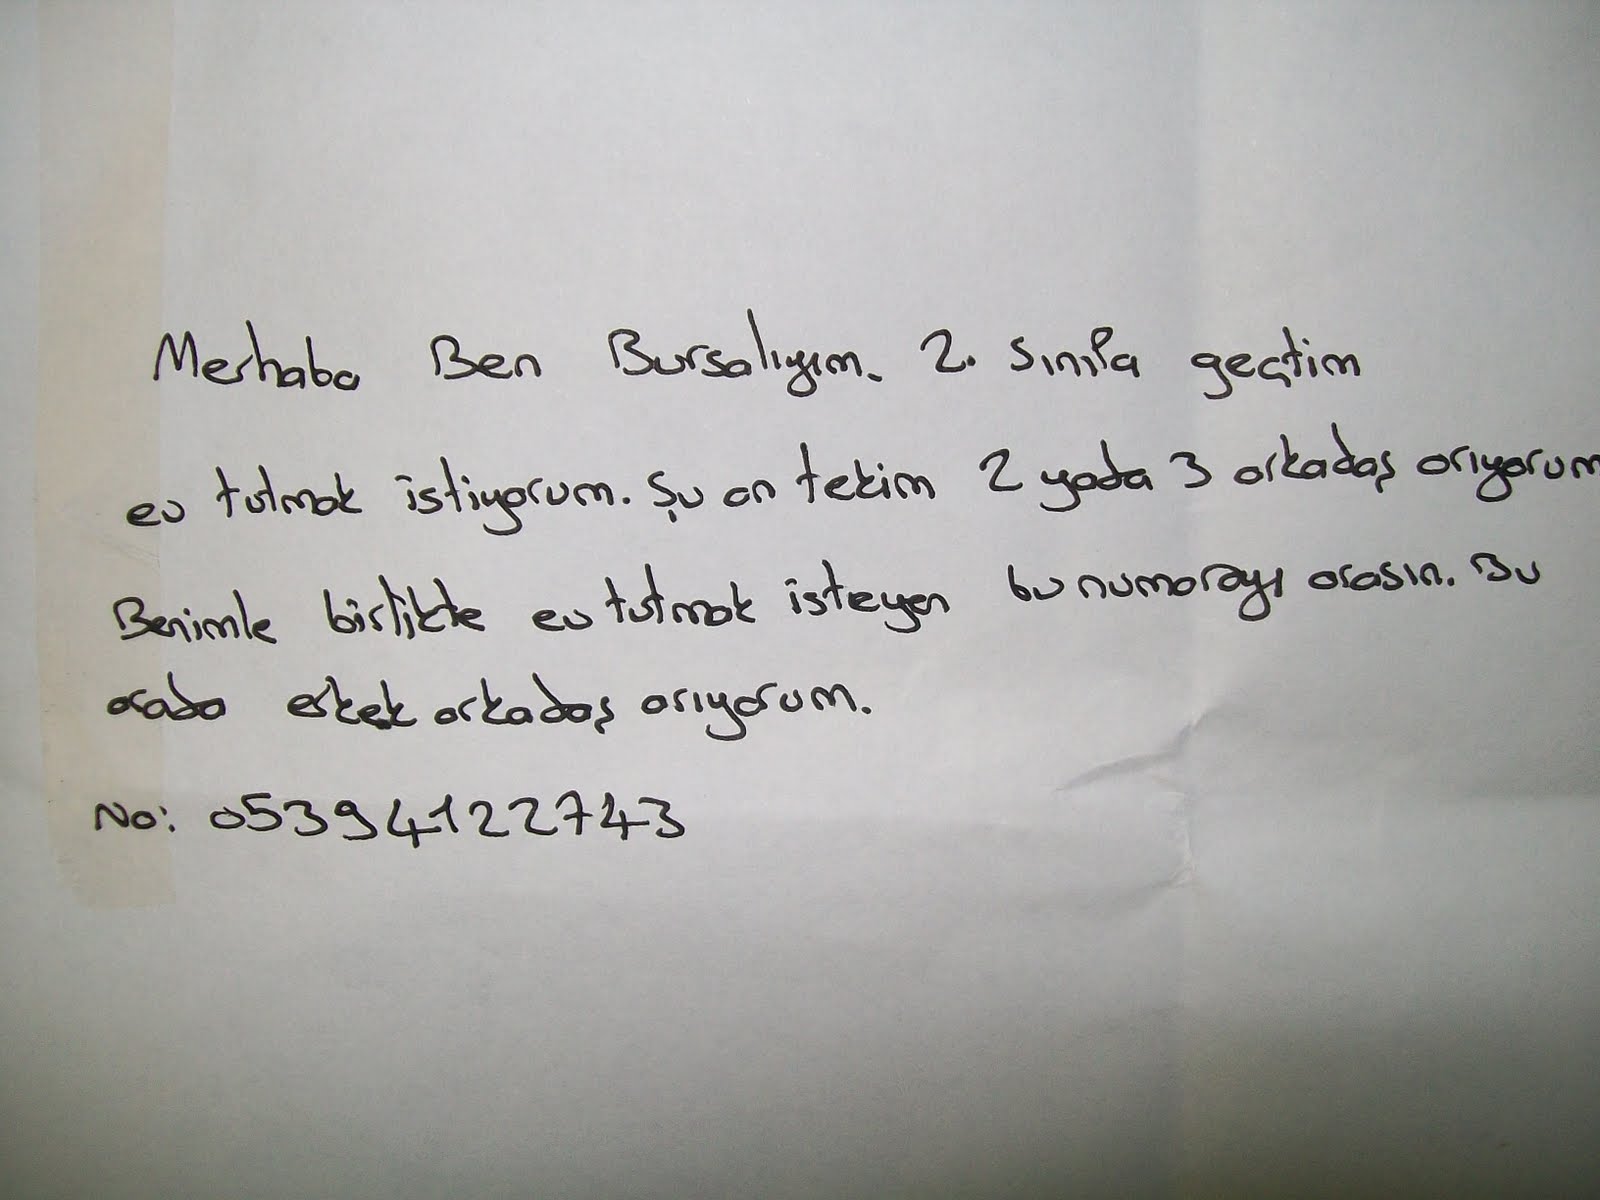 Merhaba Ben Bursalıyım. 2. sınıfa geçtim
ev tutmak istiyorum. Şu an tekim 2 yada 3 arkadaş arıyorum
Benimle birlikte ev tutmak isteyen bu numarayı arasın. Bu
arada erkek arkadaş arıyorum.
No: 05394122743